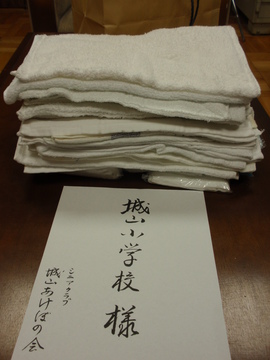 城山小学校様
シニアクラブ
城山あけぼの会